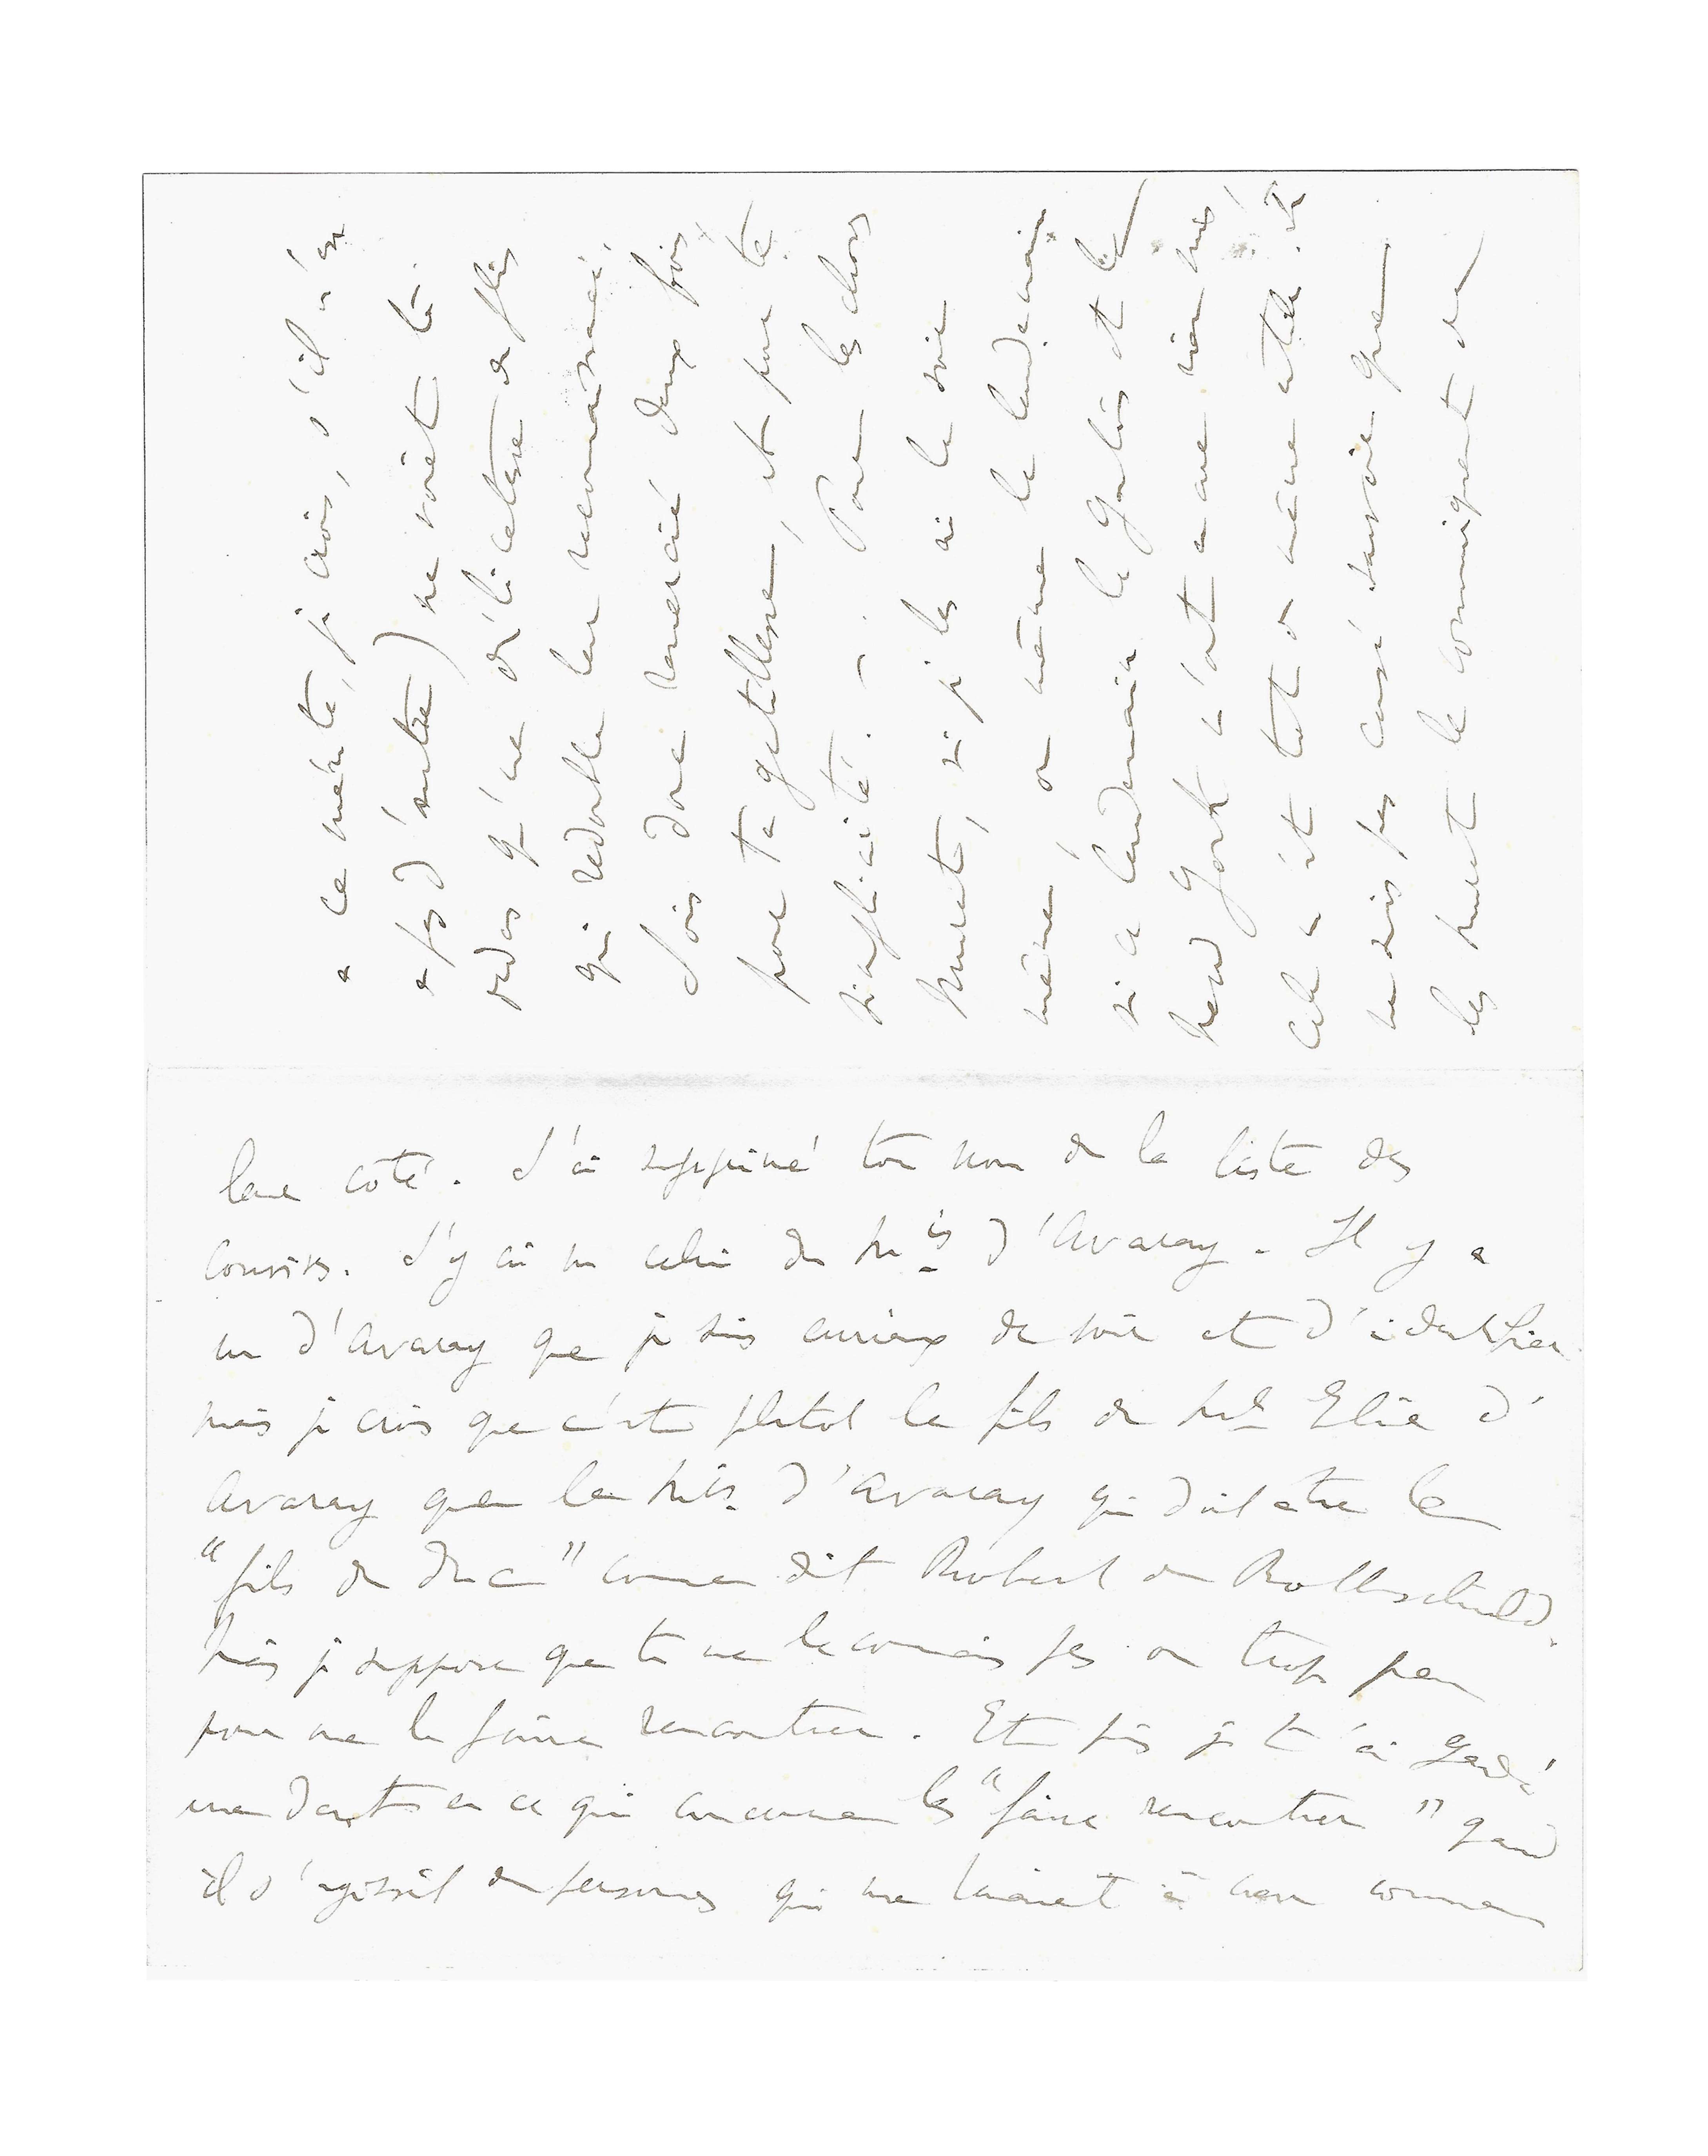 a ce mérite, je crois, s'il n'en
a pas d'autre) ne voient là
qu'une délicatesse de plus
qui redouble leur reconnaissance,
Sois donc remercié deux fois
pour ta gentillesse, et pour ta
simplicité. — . Pour les choses
Murat, si je les ai le soir
même, ou même le lendemain
si ce lendemain le Gaulois et le
New York n'ont encore rien mis,
cela m'est tout de même utile. Je
ne suis pas censé savoir que
les Murat le communiquent de
leur côté. J'ai supprimé ton nom de la liste des
convives. J'y ai vu celui du Mis d'Avaray. Il y a
un d'Avaray que je suis curieux de voir et d'identifier
mais je crois que c'est plutôt le fils de Me Elie d'
Avaray que le Mis d'Avaray qui doit être le
"fils du duc" comme dit Robert de Rothschild.
Mais je suppose que tu ne le connais pas ou trop peu
pour me le faire rencontrer. Et puis je t'ai gardé
une dent en ce qui concerne les "faire rencontrer" quand
il s'agissait de personnes qui me tenaient à cœur comme